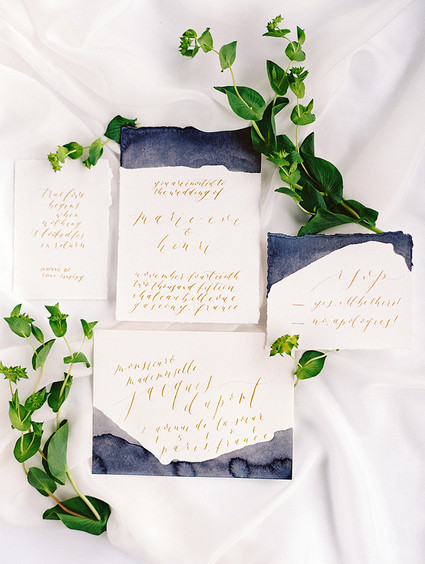 true love
begins
when
nothing
is looked for
in return
antoine de
saint-exupéry
you are invited to
the wedding of
marie-eve
&
henri
november fourteenth
two thousand fifteen
chateau bellevue
gascony, france
rsvp
yes, i'll be there!
no, apologies!
monsieur &
mademoiselle
jacques
dupont
avenue de la sœur
paris, france